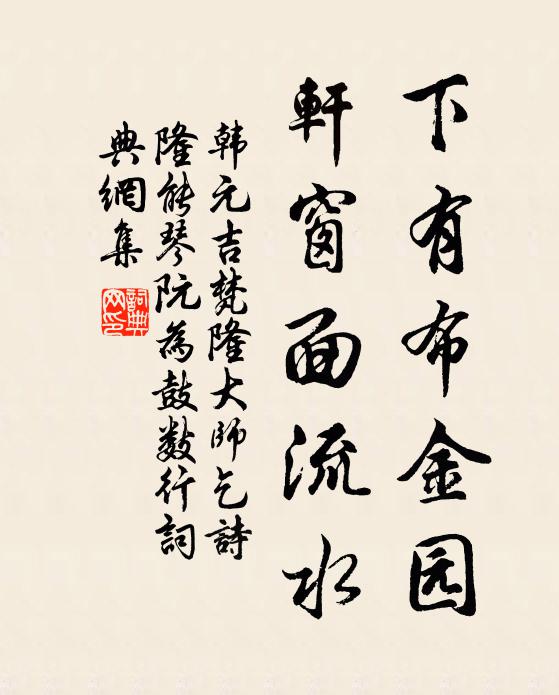 下有布金园
軒窗面流水
韩元吉梵隆大師乞詩
隆能琴阮為鼓数行詞
典網集
詞典网印